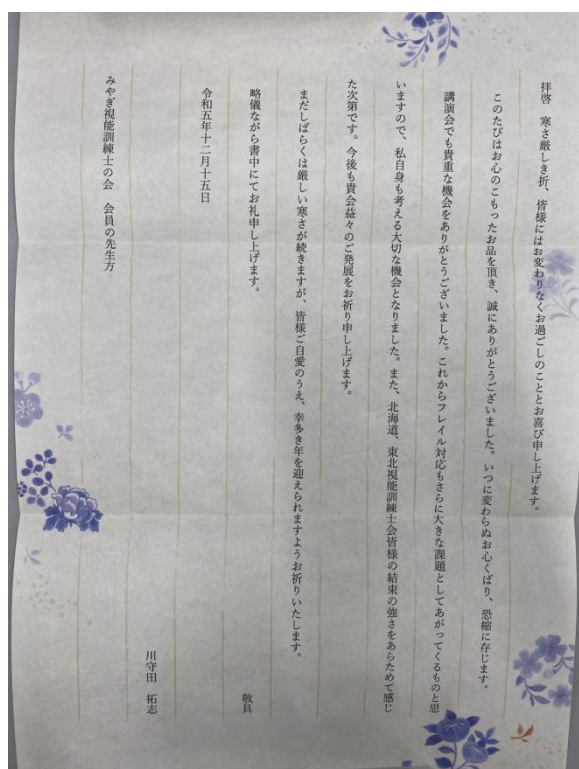 拝啓　寒さ厳しき折、皆様にはお変わりなくお過ごしのこととお喜び申し上げます。
このたびはお心のこもったお品を頂き、誠にありがとうございました。いつに変わらぬお心くばり、恐縮に存じます。
講演会でも貴重な機会をありがとうございました。これからフレイル対応もさらに大きな課題としてあがってくるものと思
いますので、私自身も考える大切な機会となりました。また、北海道、東北視能訓練士会皆様の結束の強さをあらためて感じ
た次第です。今後も貴会益々のご発展をお祈り申し上げます。
まだしばらくは厳しい寒さが続きますが、皆様ご自愛のうえ、幸多き年を迎えられますようお祈りいたします。
略儀ながら書中にてお礼申し上げます。
敬具
令和五年十二月十五日
川守田　拓志
みやぎ視能訓練士の会　会員の先生方